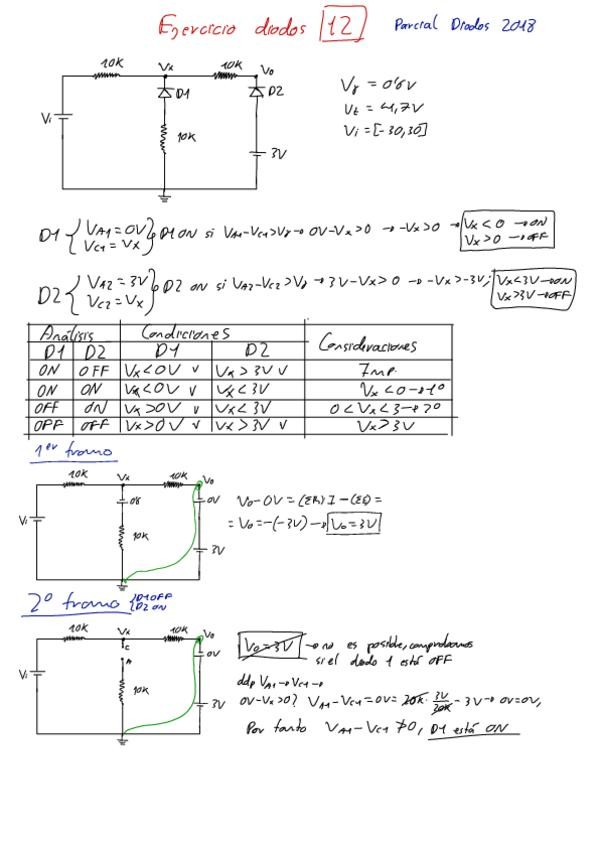 Ejercicio diodos 12 Parcial Diodos 2018
10K Vx 10K Vo
D1 D2
Vi 10K 3V
Vγ = 0'6V
Vi = [-30,30]
D1 { VA1 = 0V VC1 = Vx } D1 ON si VA1-VC1>Vγ → 0V-Vx>0 → -Vx>0 → Vx<0 → ON
Vx>0 → OFF
D2 { VA2 = 3V VC2 = Vx } D2 on si VA2-VC2>Vγ → 3V-Vx>0 → -Vx>-3V; Vx<3V → ON
Vx>3V → OFF
Análisis Condiciones Consideraciones
D1 D2 D1 D2
ON OFF Vx<0V v Vx>3V v Imp.
ON ON Vx<0V v Vx<3V Vx<0 → 1º
OFF ON Vx>0V v Vx<3V 0<Vx<3 → 2º
OFF OFF Vx>0V v Vx>3V v Vx>3V
1er tramo
10K Vx 10K Vo
0V
Vi 10K 3V
Vo-0V = (ΣR)I-(ΣE) =
= Vo = -(-3V) → Vo = 3V
2º tramo { D1 OFF D2 ON
10K Vx 10K Vo
C 0V
A
Vi 10K 3V
Vo = 3V → no es posible, comprobamos
si el diodo 1 está OFF
ddp VA1 → VC1 →
0V-Vx>0? VA1-VC1 = 0V = 20K · 3V/30K - 3V → 0V = 0V,
Por tanto VA1-VC1 ≯ 0, D1 está ON